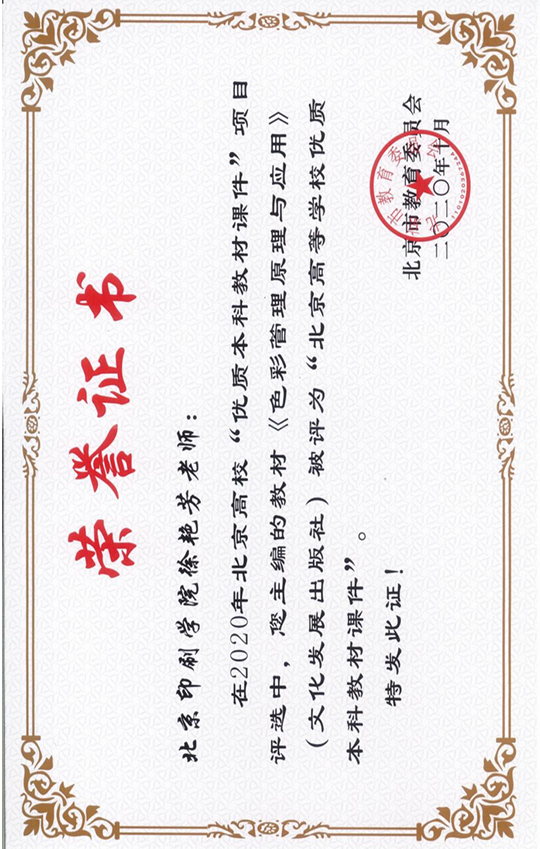 荣誉证书
北京印刷学院徐艳芳老师：
在2020年北京高校“优质本科教材课件”项目
评选中，您主编的教材《色彩管理原理与应用》
（文化发展出版社）被评为“北京高等学校优质
本科教材课件”。
特发此证！
北京市教育委员会
二〇二〇年十月